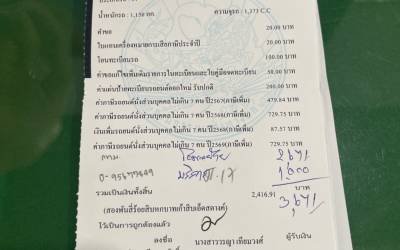 น้ำหนักรถ : 1,150 กก. ความจุรถ : 1,373 C.C
ค่าขอ 20.00 บาท
ใบแทนเครื่องหมายการเสียภาษีประจำปี 20.00 บาท
โอนทะเบียนรถ 100.00 บาท
ค่าขอแก้ไขเพิ่มเติมรายการในทะเบียนและใบคู่มือจดทะเบียน 50.00 บาท
ค่าแผ่นป้ายทะเบียนรถยนต์ออกใหม่ รับปกติ 200.00 บาท
ค่าภาษีรถยนต์นั่งส่วนบุคคลไม่เกิน 7 คน ปี2567(ภาษีเพิ่ม) 479.84 บาท
ค่าภาษีรถยนต์นั่งส่วนบุคคลไม่เกิน 7 คน ปี2568(ภาษีเพิ่ม) 729.75 บาท
เงินเพิ่มรถยนต์นั่งส่วนบุคคลไม่เกิน 7 คน ปี2568(ภาษีเพิ่ม) 87.57 บาท
ค่าภาษีรถยนต์นั่งส่วนบุคคลไม่เกิน 7 คน ปี2569(ภาษีเพิ่ม) 729.75 บาท
2671
1000
รวมเป็นเงินทั้งสิ้น 2,416.91 บาท
3,671
(สองพันสี่ร้อยสิบหกบาทเก้าสิบเอ็ดสตางค์)
ไว้เป็นการถูกต้องแล้ว
ลงชื่อ ผู้รับเงิน
นางสาววรญา เทียมวงศ์